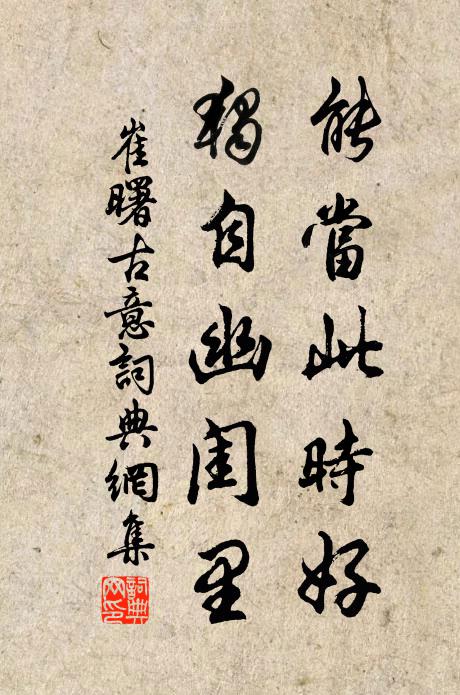 能當此時好
獨自幽閨里
崔曙古意詞典網集
詞典網印